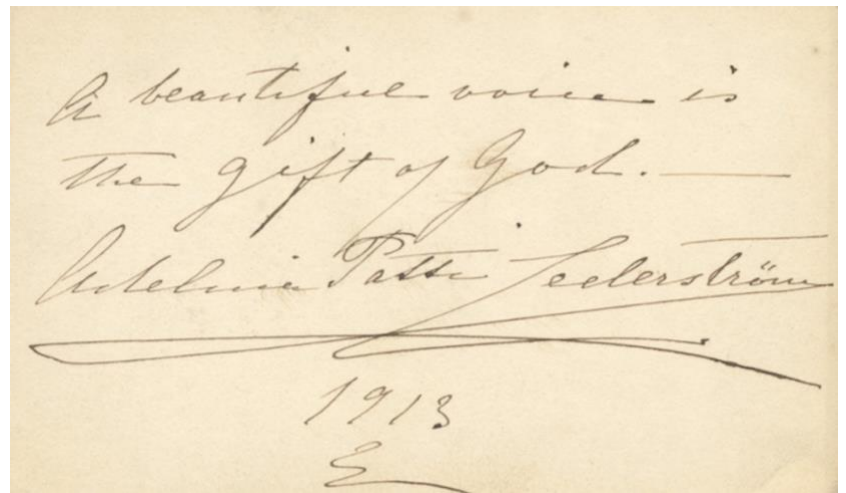 A beautiful voice is
the gift of God. —
Adelina Patti Cederström
1913